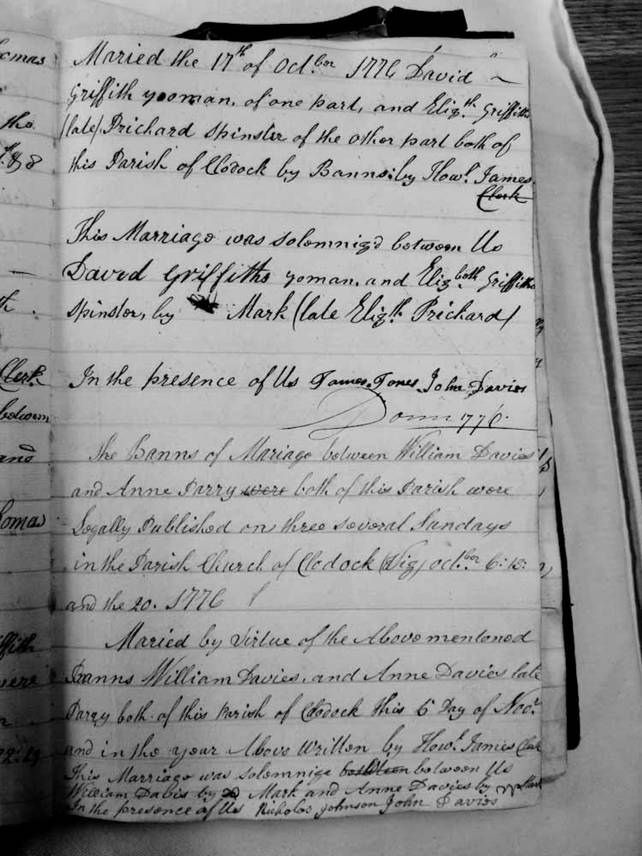 omas
tho
Clerk
between
and
Lomas
were
Maried the 17th of Octbor 1776 David
Griffith yooman, of one part, and Elizth Griffith
(late) Prichard spinster of the other part both of
this Parish of Clodock by Banns: by Howl James
Clerk
This Marriage was solemnizd between Us
David Griffiths yoman, and Elizboth Griffith
spinster, by Mark (late Elizth Prichard)
In the presence of Us James Jones John Davies
1776
the Banns of Mariage between William Davies
and Anne Parry were both of this Parish were
Legally Published on three several Sundays
in the Parish Church of Clodock (Viz) octbor 6: 13:
and the 20. 1776
Maried by Virtue of the Above mentoned
Banns William Davies, and Anne Davies late
Parry both of this Parish of Clodock this 6 Day of Novr
and in the year Above Written by Howl James Clerk
This Marriage was solemnize between Us
William Dabis by Mark and Anne Davies by Mark
In the presence of Us Nicholos Johnson John Davies